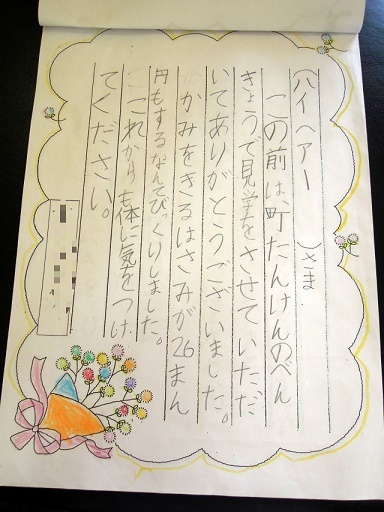 (ハイヘアー　　)さま
この前は、町たんけんのべん
きょうで見学をさせていただ
いてありがとうございました。
かみをきるはさみが26まん
円もするなんてびっくりしました。
これからも体に気をつけ
てください。